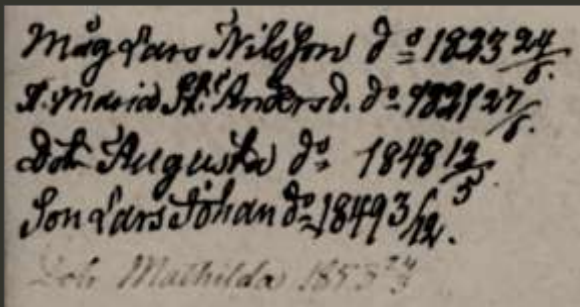 Måg Lars Nilsson do 1823 24/8.
H. Maria St. Andersd. do 1821 27/8.
Dotr Augusta do 1848 12/5
Son Lars Johan do 1849 3/12.
Dotr Mathilda 1853